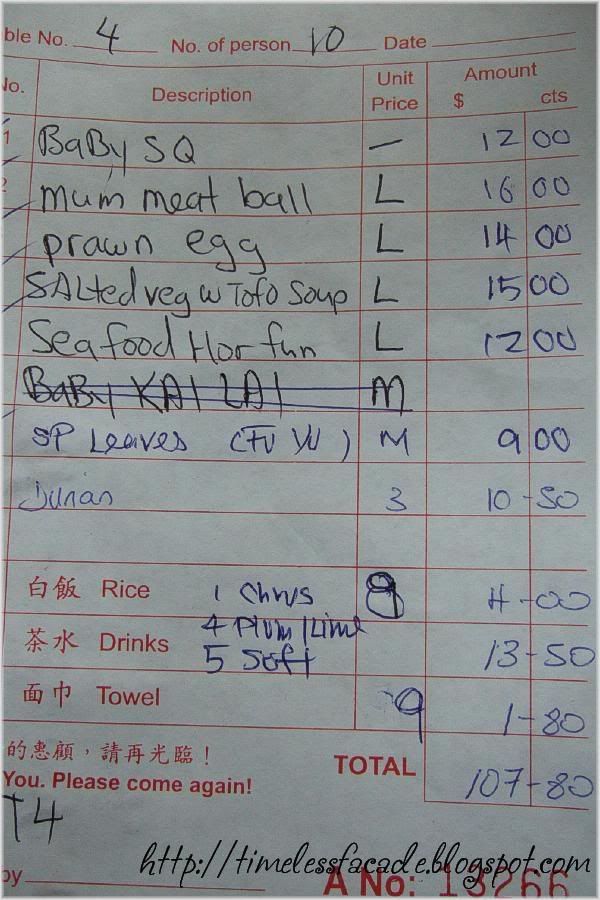 ble No. 4 No. of person 10 Date
No. Description Unit Price Amount $ cts
1 BaBy SQ — 12 00
2 mum meat ball L 16 00
prawn egg L 14 00
SALted veg w Tofo Soup L 15 00
Seafood Hor fun L 12 00
BaBy KAI LAI M
SP Leaves (FU YU) M 9 00
Durian 3 10-50
白飯 Rice 1 Chrys 8 4-00
茶水 Drinks 4 Plum/Lime 5 Soft 13-50
面巾 Towel 9 1-80
的惠顧，請再光臨！
You. Please come again! TOTAL 107-80
T4
http://timelessfacade.blogspot.com
by A No: 13266